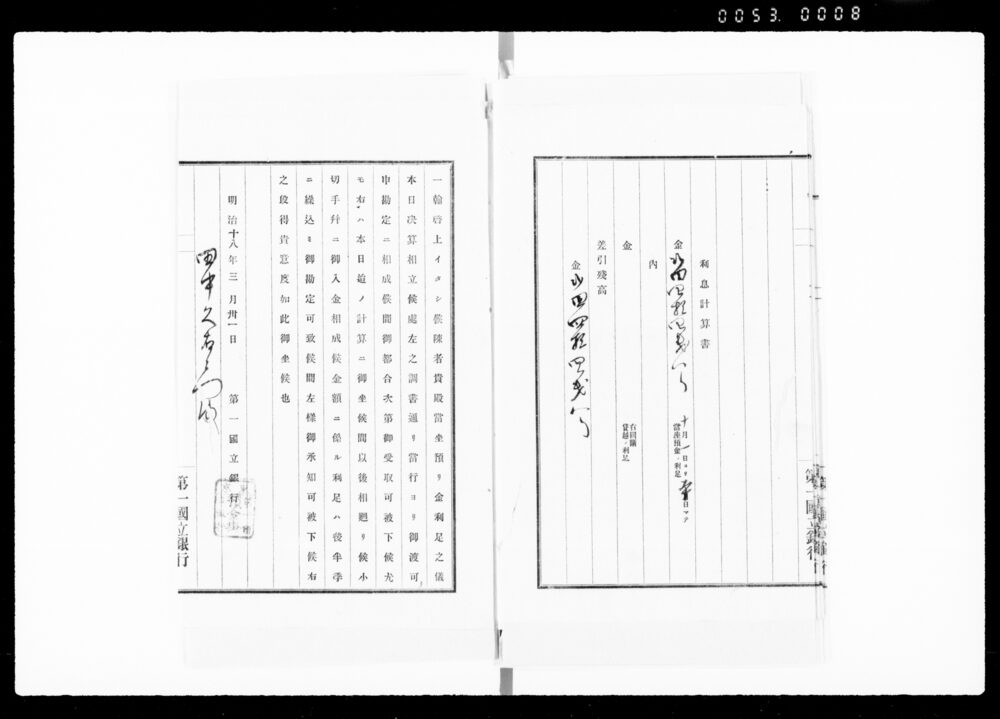 0053. 0008
利息計算書
金
十月一日ヨリ
日マテ
當座預金ノ利足
內
金
右同斷
貸越ノ利足
差引殘高
金
第一國立銀行
一翰啓上イタシ候陳者貴殿當坐預リ金利足之儀
本日決算相立候處左之調書通リ當行ヨリ御渡可
申勘定ニ相成候間御都合次第御受取可被下候尤
モ右ハ本日迄ノ計算ニ御坐候間以後相廻リ候小
切手幷ニ御入金相成候金額ニ係ル利足ハ後半季
ニ繰込ミ御勘定可致候間左樣御承知可被下候右
之段得貴意度如此御坐候也
明治十八年三月卅一日 第一國立銀行
田中久右衛門殿
第一國立銀行